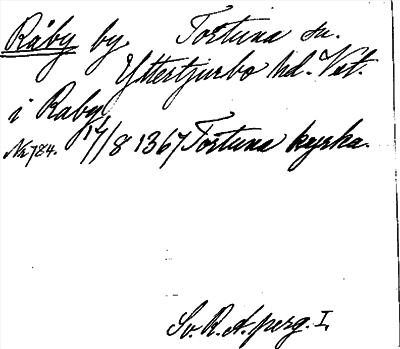 Råby by Tortuna sn.
Yttertjurbo hd. Vstm.
i Raby
№ 784. 17/8 1367 Tortuna kyrka.
Sv. R. A. perg. I,